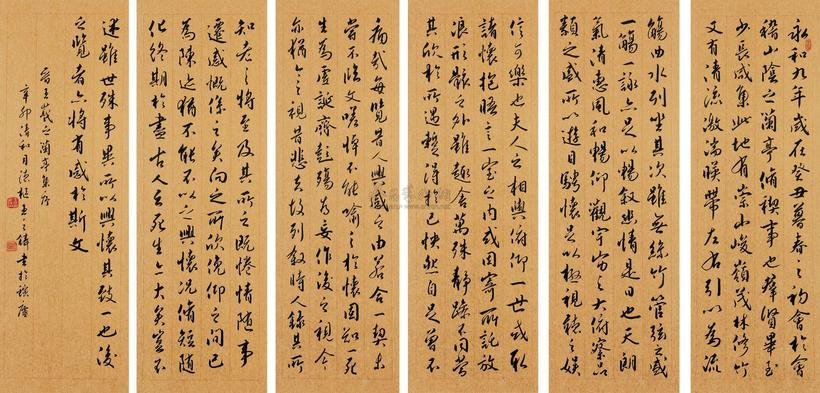 永和九年歲在癸丑暮春之初會於會
稽山陰之蘭亭脩禊事也群賢畢至
少長咸集此地有崇山峻嶺茂林脩竹
又有清流激湍暎帶左右引以為流
觴曲水列坐其次雖無絲竹管弦之盛
一觴一詠亦足以暢敘幽情是日也天朗
氣清惠風和暢仰觀宇宙之大俯察品
類之盛所以遊目騁懷足以極視聽之娛
信可樂也夫人之相與俯仰一世或取
諸懷抱悟言一室之內或因寄所託放
浪形骸之外雖趣舍萬殊靜躁不同當
其欣於所遇暫得於己快然自足曾不
痛哉每覽昔人興感之由若合一契未
嘗不臨文嗟悼不能喻之於懷固知一死
生為虛誕齊彭殤為妄作後之視今
亦猶今之視昔悲夫故列敘時人錄其所
知老之將至及其所之既惓情隨事
遷感慨係之矣向之所欣俛仰之間已
為陳迹猶不能不以之興懷況脩短隨
化終期於盡古人云死生亦大矣豈不
述雖世殊事異所以興懷其致一也後
之覽者亦將有感於斯文
晉王羲之蘭亭集序
辛卯清和月書於